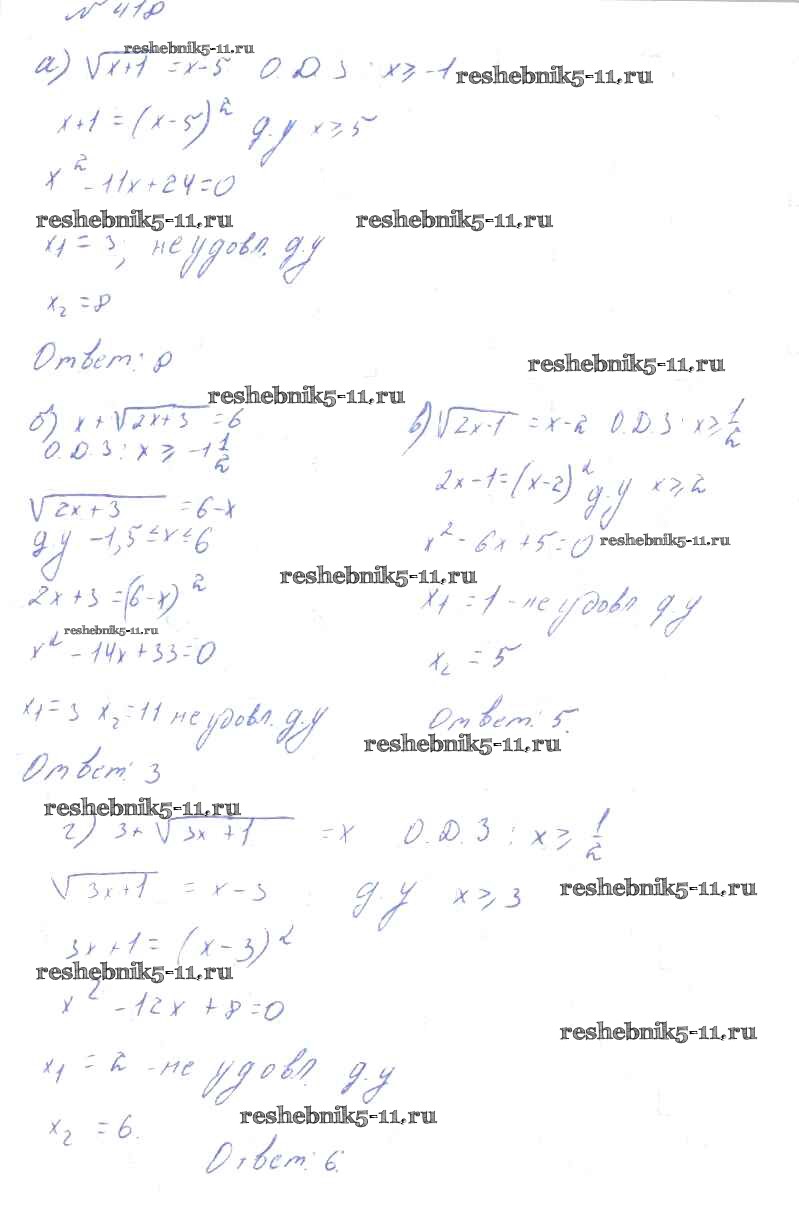 № 418
reshebnik5-11.ru
а) √x+1 = x-5 О.Д.З : x ≥ -1
reshebnik5-11.ru
x+1 = (x-5)² д.у x ≥ 5
x² - 11x + 24 = 0
reshebnik5-11.ru reshebnik5-11.ru
x₁ = 3; не удовл. д.у
x₂ = 8
Ответ: 8
reshebnik5-11.ru
reshebnik5-11.ru
б) x + √2x+3 = 6
О.Д.З : x ≥ -1 1/2
√2x+3 = 6-x
д.у -1,5 ≤ x ≤ 6
reshebnik5-11.ru
2x+3 = (6-x)²
reshebnik5-11.ru
x² - 14x + 33 = 0
x₁ = 3 x₂ = 11 не удовл. д.у
Ответ: 3
в) √2x-1 = x-2 О.Д.З : x ≥ 1/2
2x-1 = (x-2)² д.у x ≥ 2
x² - 6x + 5 = 0
reshebnik5-11.ru
x₁ = 1 - не удовл д.у
x₂ = 5
Ответ: 5.
reshebnik5-11.ru
reshebnik5-11.ru
г) 3 + √3x+1 = x О.Д.З : x ≥ 1/2
√3x+1 = x-3 д.у x ≥ 3
reshebnik5-11.ru
3x+1 = (x-3)²
reshebnik5-11.ru
x² - 12x + 8 = 0
reshebnik5-11.ru
x₁ = 2 - не удовл. д.у
reshebnik5-11.ru
x₂ = 6.
Ответ: 6.